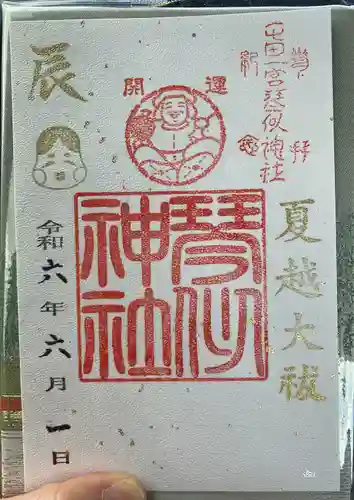 奉拝
吉田一宮琴似神社
開運
夏越大祓
琴似神社
辰
令和六年六月一日